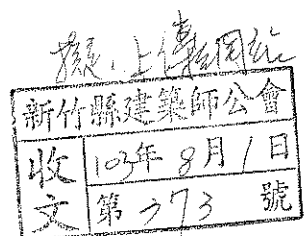 擬:上傳網站
新竹縣建築師公會
收文
103年8月1日
第373號